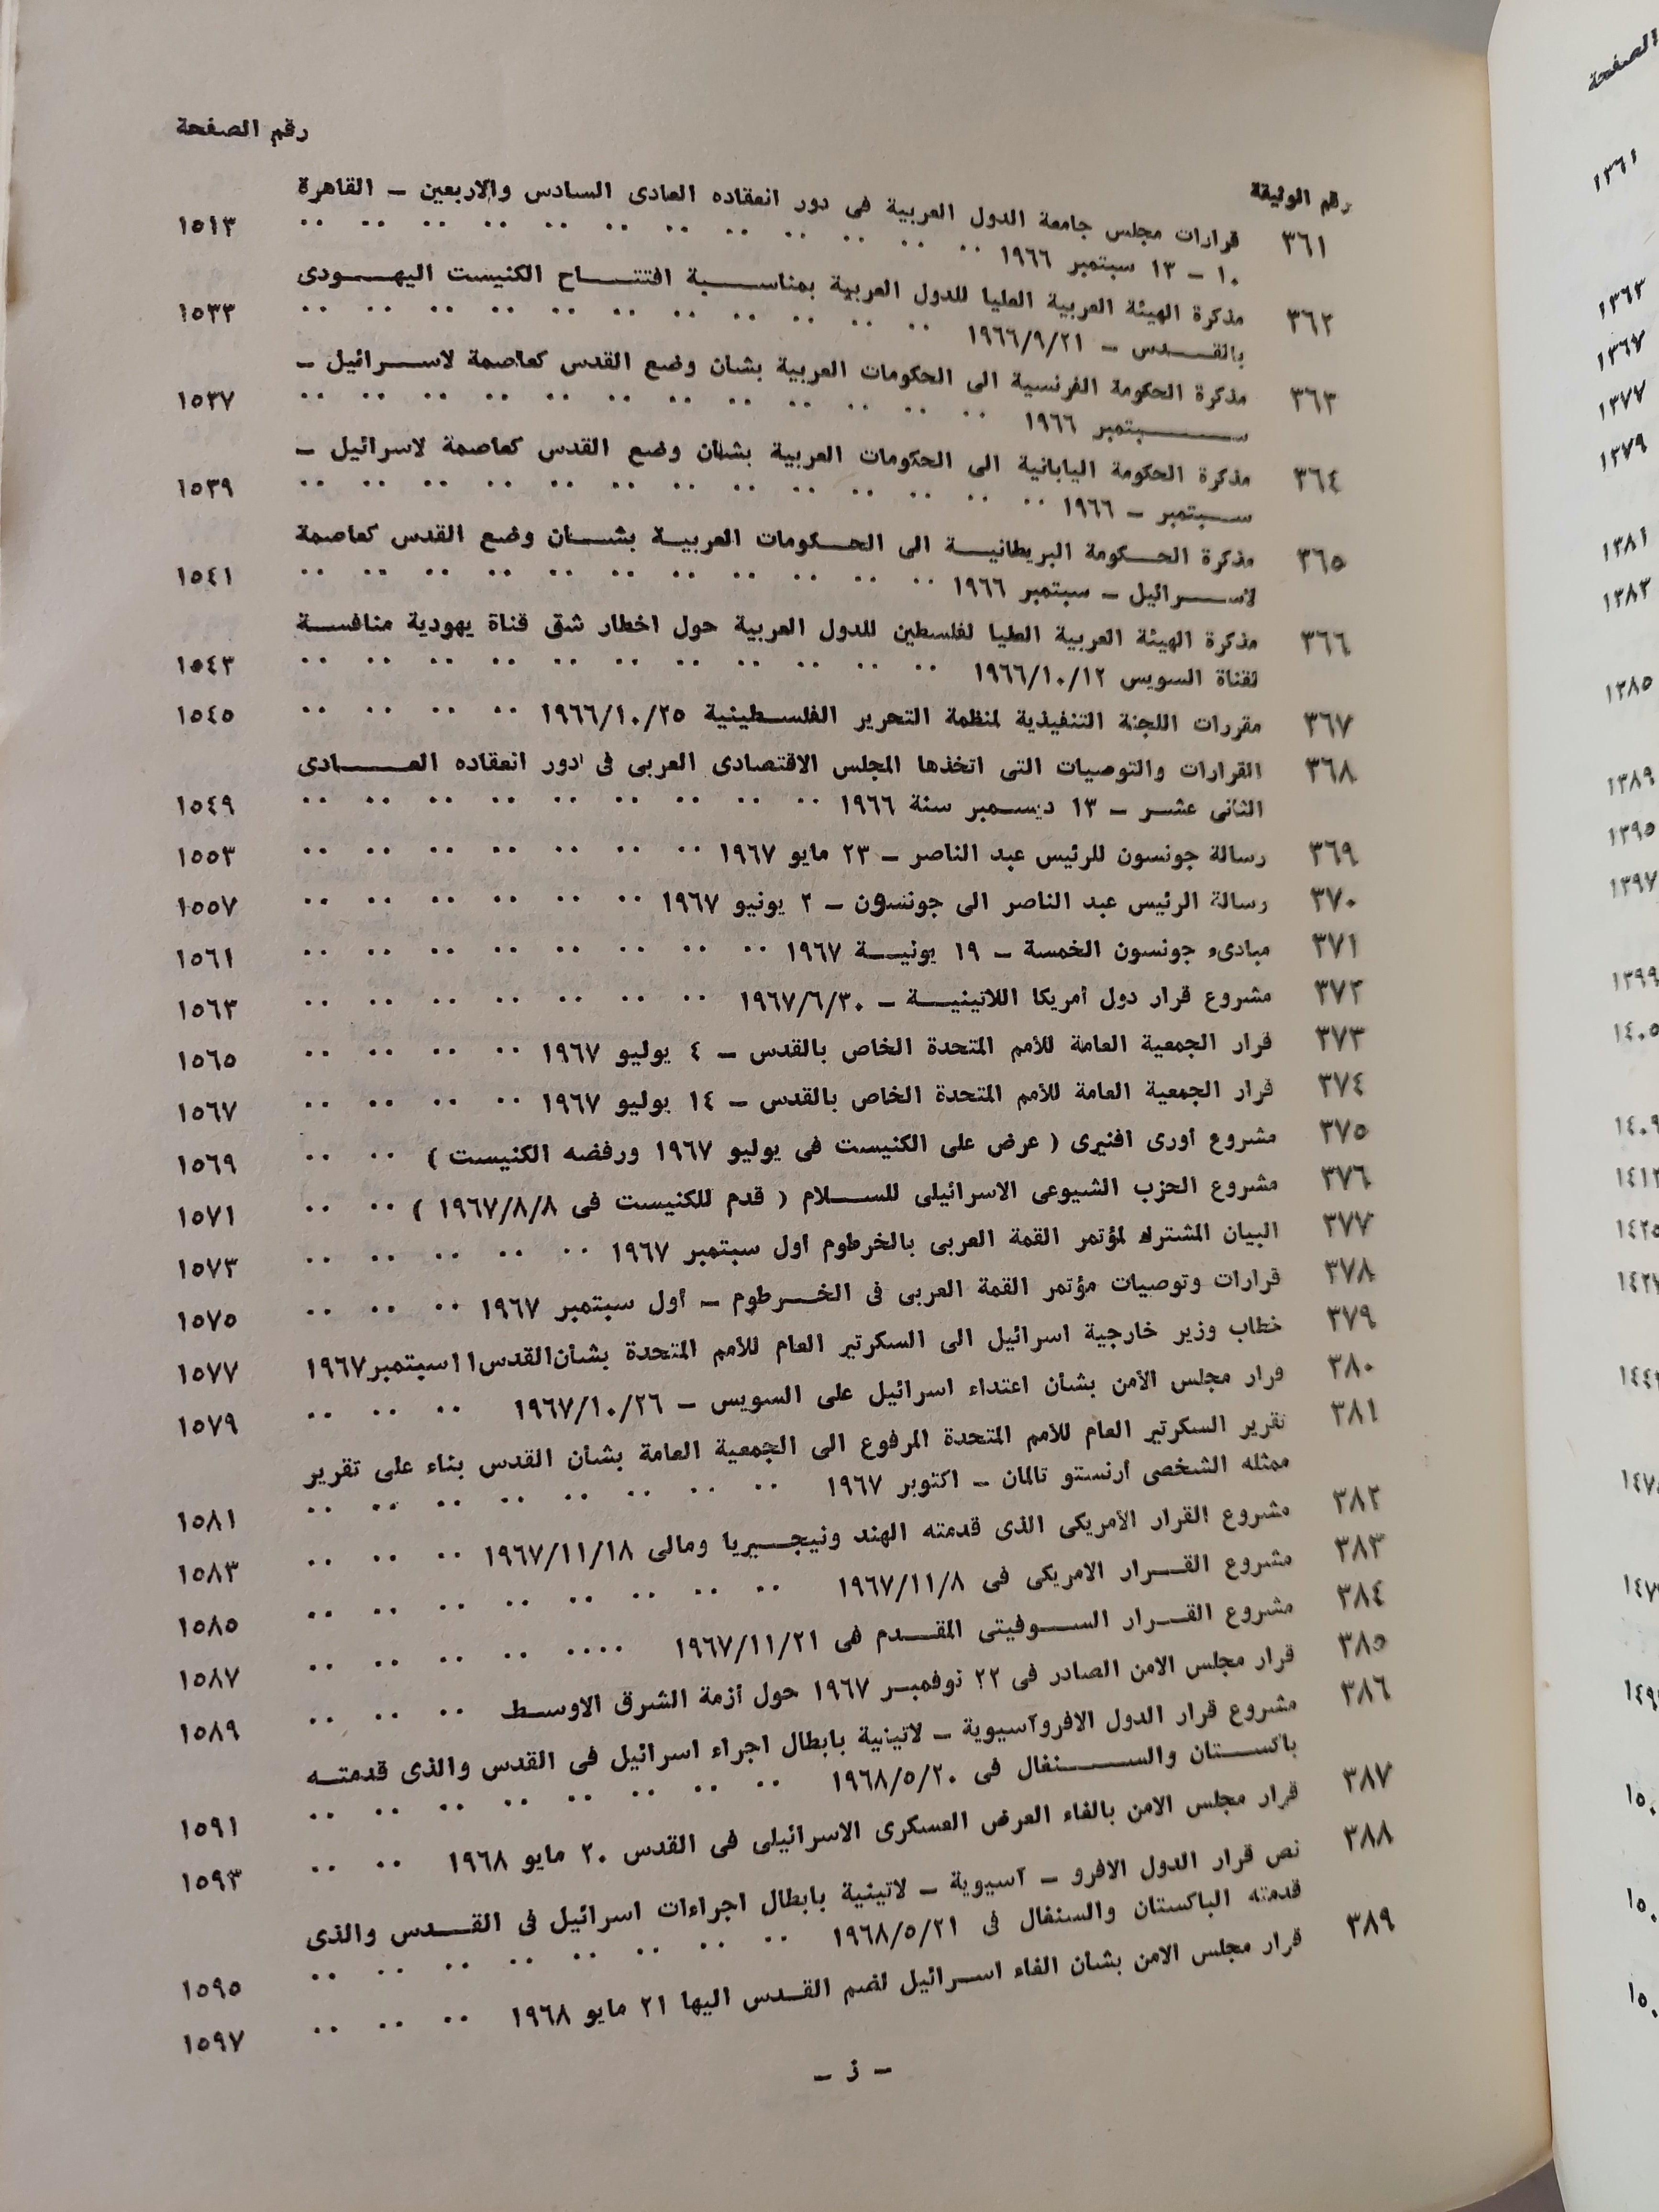 رقم الوثيقة رقم الصفحة
٣٦١ قرارات مجلس جامعة الدول العربية في دور انعقاده العادى السادس والاربعين ــ القاهرة
١٠ ــ ١٣ سبتمبر ١٩٦٦ ١٥١٣
٣٦٢ مذكرة الهيئة العربية العليا للدول العربية بمناسبة افتتاح الكنيست اليهودى
بالقدس ــ ١٩٦٦/٩/٢١ ١٥٣٣
٣٦٣ مذكرة الحكومة الفرنسية الى الحكومات العربية بشان وضع القدس كعاصمة لاسرائيل ــ
سبتمبر ١٩٦٦ ١٥٣٧
٣٦٤ مذكرة الحكومة اليابانية الى الحكومات العربية بشأن وضع القدس كعاصمة لاسرائيل ــ
سبتمبر ــ ١٩٦٦ ١٥٣٩
٣٦٥ مذكرة الحكومة البريطانية الى الحكومات العربية بشان وضع القدس كعاصمة
لاسرائيل ــ سبتمبر ١٩٦٦ ١٥٤١
٣٦٦ مذكرة الهيئة العربية العليا لفلسطين للدول العربية حول اخطار شق قناة يهودية منافسة
لقناة السويس ١٩٦٦/١٠/١٢ ١٥٤٣
٣٦٧ مقررات اللجنة التنفيذية لمنظمة التحرير الفلسطينية ١٩٦٦/١٠/٢٥ ١٥٤٥
٣٦٨ القرارات والتوصيات التى اتخذها المجلس الاقتصادى العربى فى دور انعقاده العادى
الثانى عشر ــ ١٣ ديسمبر سنة ١٩٦٦ ١٥٤٩
٣٦٩ رسالة جونسون للرئيس عبد الناصر ــ ٢٣ مايو ١٩٦٧ ١٥٥٣
٣٧٠ رسالة الرئيس عبد الناصر الى جونسون ــ ٢ يونيو ١٩٦٧ ١٥٥٧
٣٧١ مبادىء جونسون الخمسة ــ ١٩ يونية ١٩٦٧ ١٥٦١
٣٧٢ مشروع قرار دول أمريكا اللاتينية ــ ١٩٦٧/٦/٣٠ ١٥٦٣
٣٧٣ قرار الجمعية العامة للأمم المتحدة الخاص بالقدس ــ ٤ يوليو ١٩٦٧ ١٥٦٥
٣٧٤ قرار الجمعية العامة للأمم المتحدة الخاص بالقدس ــ ١٤ يوليو ١٩٦٧ ١٥٦٧
٣٧٥ مشروع أورى افنيرى ( عرض على الكنيست فى يوليو ١٩٦٧ ورفضه الكنيست ) ١٥٦٩
٣٧٦ مشروع الحزب الشيوعى الاسرائيلى للسلام ( قدم للكنيست فى ١٩٦٧/٨/٨ ) ١٥٧١
٣٧٧ البيان المشترك لمؤتمر القمة العربى بالخرطوم أول سبتمبر ١٩٦٧ ١٥٧٣
٣٧٨ قرارات وتوصيات مؤتمر القمة العربى فى الخرطوم ــ أول سبتمبر ١٩٦٧ ١٥٧٥
٣٧٩ خطاب وزير خارجية اسرائيل الى السكرتير العام للأمم المتحدة بشأن القدس ١١ سبتمبر ١٩٦٧ ١٥٧٧
٣٨٠ قرار مجلس الأمن بشأن اعتداء اسرائيل على السويس ــ ١٩٦٧/١٠/٢٦ ١٥٧٩
٣٨١ تقرير السكرتير العام للأمم المتحدة المرفوع الى الجمعية العامة بشأن القدس بناء على تقرير
ممثله الشخصى أرنستو تالمان ــ اكتوبر ١٩٦٧ ١٥٨١
٣٨٢ مشروع القرار الأمريكى الذى قدمته الهند ونيجيريا ومالى ١٩٦٧/١١/١٨ ١٥٨٣
٣٨٣ مشروع القرار الامريكى فى ١٩٦٧/١١/٨ ١٥٨٥
٣٨٤ مشروع القرار السوفيتى المقدم فى ١٩٦٧/١١/٢١ ١٥٨٧
٣٨٥ قرار مجلس الامن الصادر فى ٢٢ نوفمبر ١٩٦٧ حول أزمة الشرق الاوسط ١٥٨٩
٣٨٦ مشروع قرار الدول الافروآسيوية ــ لاتينية بابطال اجراء اسرائيل فى القدس والذى قدمته
باكستان والسنغال فى ١٩٦٨/٥/٢٠ ١٥٩١
٣٨٧ قرار مجلس الامن بالغاء العرض العسكرى الاسرائيلى فى القدس ٢٠ مايو ١٩٦٨ ١٥٩٣
٣٨٨ نص قرار الدول الافرو ــ آسيوية ــ لاتينية بابطال اجراءات اسرائيل فى القدس والذى
قدمته الباكستان والسنغال فى ١٩٦٨/٥/٢١ ١٥٩٥
٣٨٩ قرار مجلس الامن بشأن الغاء اسرائيل لضم القدس اليها ٢١ مايو ١٩٦٨ ١٥٩٧
ــ ز ــ
الصفحة
١٣٦١
١٣٦٣
١٣٦٧
١٣٧٧
١٣٧٩
١٣٨١
١٣٨٣
١٣٨٥
١٣٨٩
١٣٩٥
١٣٩٧
١٣٩٩
١٤٠٥
١٤٠٩